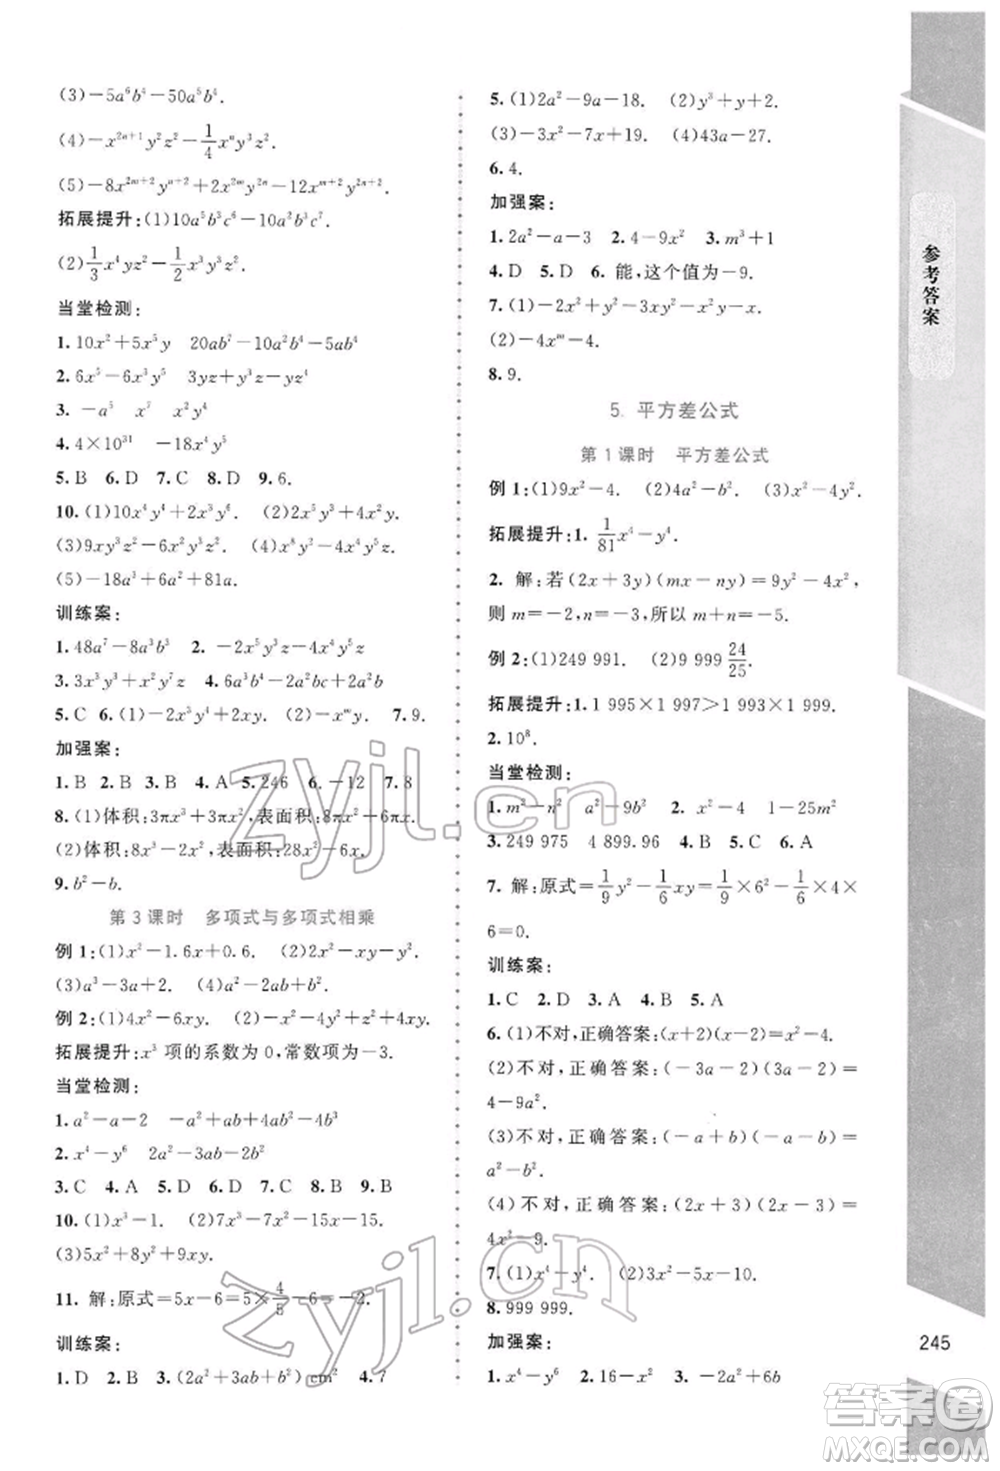 (3)-5a⁶b⁴-50a⁵b⁴.
(4)-x²ⁿ⁺¹yz²-1/4xⁿy³z².
(5)-8x²ᵐ⁺²yⁿ⁺²+2x²ᵐy²ⁿ-12xᵐ⁺²yⁿ⁺².
拓展提升:(1)10a⁵b³c⁶-10a²b³c⁷.
(2)1/3x⁴yz²-1/2x³y²z².
当堂检测:
1. 10x²+5x⁵y 20ab⁷-10a²b⁵+5ab⁴
2. 6x⁵-6x³y⁵ 3yz+yz²-2y
3. -a⁵ x⁷ x³
4. 4×10³¹ -18x⁴y
5. B 6. D 7. C 8. D 9. 6.
10. (1)10x⁴y⁴+2x³y⁶. (2)2x³y-2x²y².
(3)9xy³z²-x²y⁵z². (4)x⁸y²-x⁶y⁴z²+x⁴.
(5)-18a³+6a²+81a.
训练案:
1. 48a⁷-8a³b³ 2. -2x⁵y³z-4x⁴y⁵z
3. 3x³y³-2x²y²z 4. 6a³b-2a²bc+2a²
5. C 6. (1)-2x³y⁴+6xy. (2)-xᵐy. 7. 9.
加强案:
1. B 2. B 3. B 4. A 5. 246 6. -12 7. 8
8. (1)体积:3πx³+3πx²,表面积:8πx²+6πx.
(2)体积:8x³-2x²,表面积:28x²-6x.
9. b²-b.
第3课时 多项式与多项式相乘
例1:(1)x²-1.6x+0.6. (2)2x²-xy-y².
(3)a³-3a+2. (4)a²-2ab+b²-c².
例2:(1)4x²-6xy. (2)x²-2xy+y²+z².
拓展提升:x³ 项的系数为0,常数项为-3.
当堂检测:
1. a²-a-2 -a²+ab+4ab-4b²
2. x⁴-y⁶ 2a²-3ab-2b²
3. C 4. A 5. B 6. D 7. D 8. D 9. A
10. (1)x³-1. (2)7x³-7x²-15x-15.
(3)5x²+8y²+9xy.
11. 解:原式=5x-6=5×4/5-6=-2.
训练案:
1. D 2. D 3. (2a²+ab-b²)cm² 4. 7
5. (1)2a²-9a-18. (2)y³+y+2.
(3)-3x²-7x+19. (4)43a-27.
6. 4.
加强案:
1. 2a²-a-3 2. 4-9x² 3. m³+1
4. D 5. D 6. 能,这个值为-9.
7. (1)-2x³+x²y+3xy²-x²-y-x.
(2)-4xᵐ-4.
8. 9.
5. 平方差公式
第1课时 平方差公式
例1:(1)9x²-4. (2)4a²-b². (3)x²-4y².
拓展提升:1. 1/81x⁴-y⁴.
2. 解:若(2x+3y)(mx-ny)=9y²-4x²,
则 m=-2,n=-3,所以 m+n=-5.
例2:(1)249 991. (2)9 999 24/25.
拓展提升:1. 1 995×1 997>1 993×1 999.
2. 10⁸.
当堂检测:
1. m²-n² a²-9b² 2. x²-4 1-25m²
3. 249 975 4 899.96 4. B 5. C 6. A
7. 解:原式=1/9y²-1/6xy=1/9×6²-1/6×4×
6=0.
训练案:
1. C 2. D 3. A 4. B 5. A
6. (1)不对,正确答案:(x+2)(x-2)=x²-4.
(2)不对,正确答案:(-3a-2)(3a-2)=
4-9a².
(3)不对,正确答案:(-a+b)(-a-b)=
a²-b².
(4)不对,正确答案:(2x+3)(2x-3)=
4x²-9.
7. (1)x⁴-y⁴. (2)4x²-5x-10.
8. 999 999.
加强案:
1. x⁴-y⁶ 2. 16-x⁴ 3. -2a²+6b
参考答案
245
zyjl.cn
zyjl.cn
答案圈
MXQE.COM